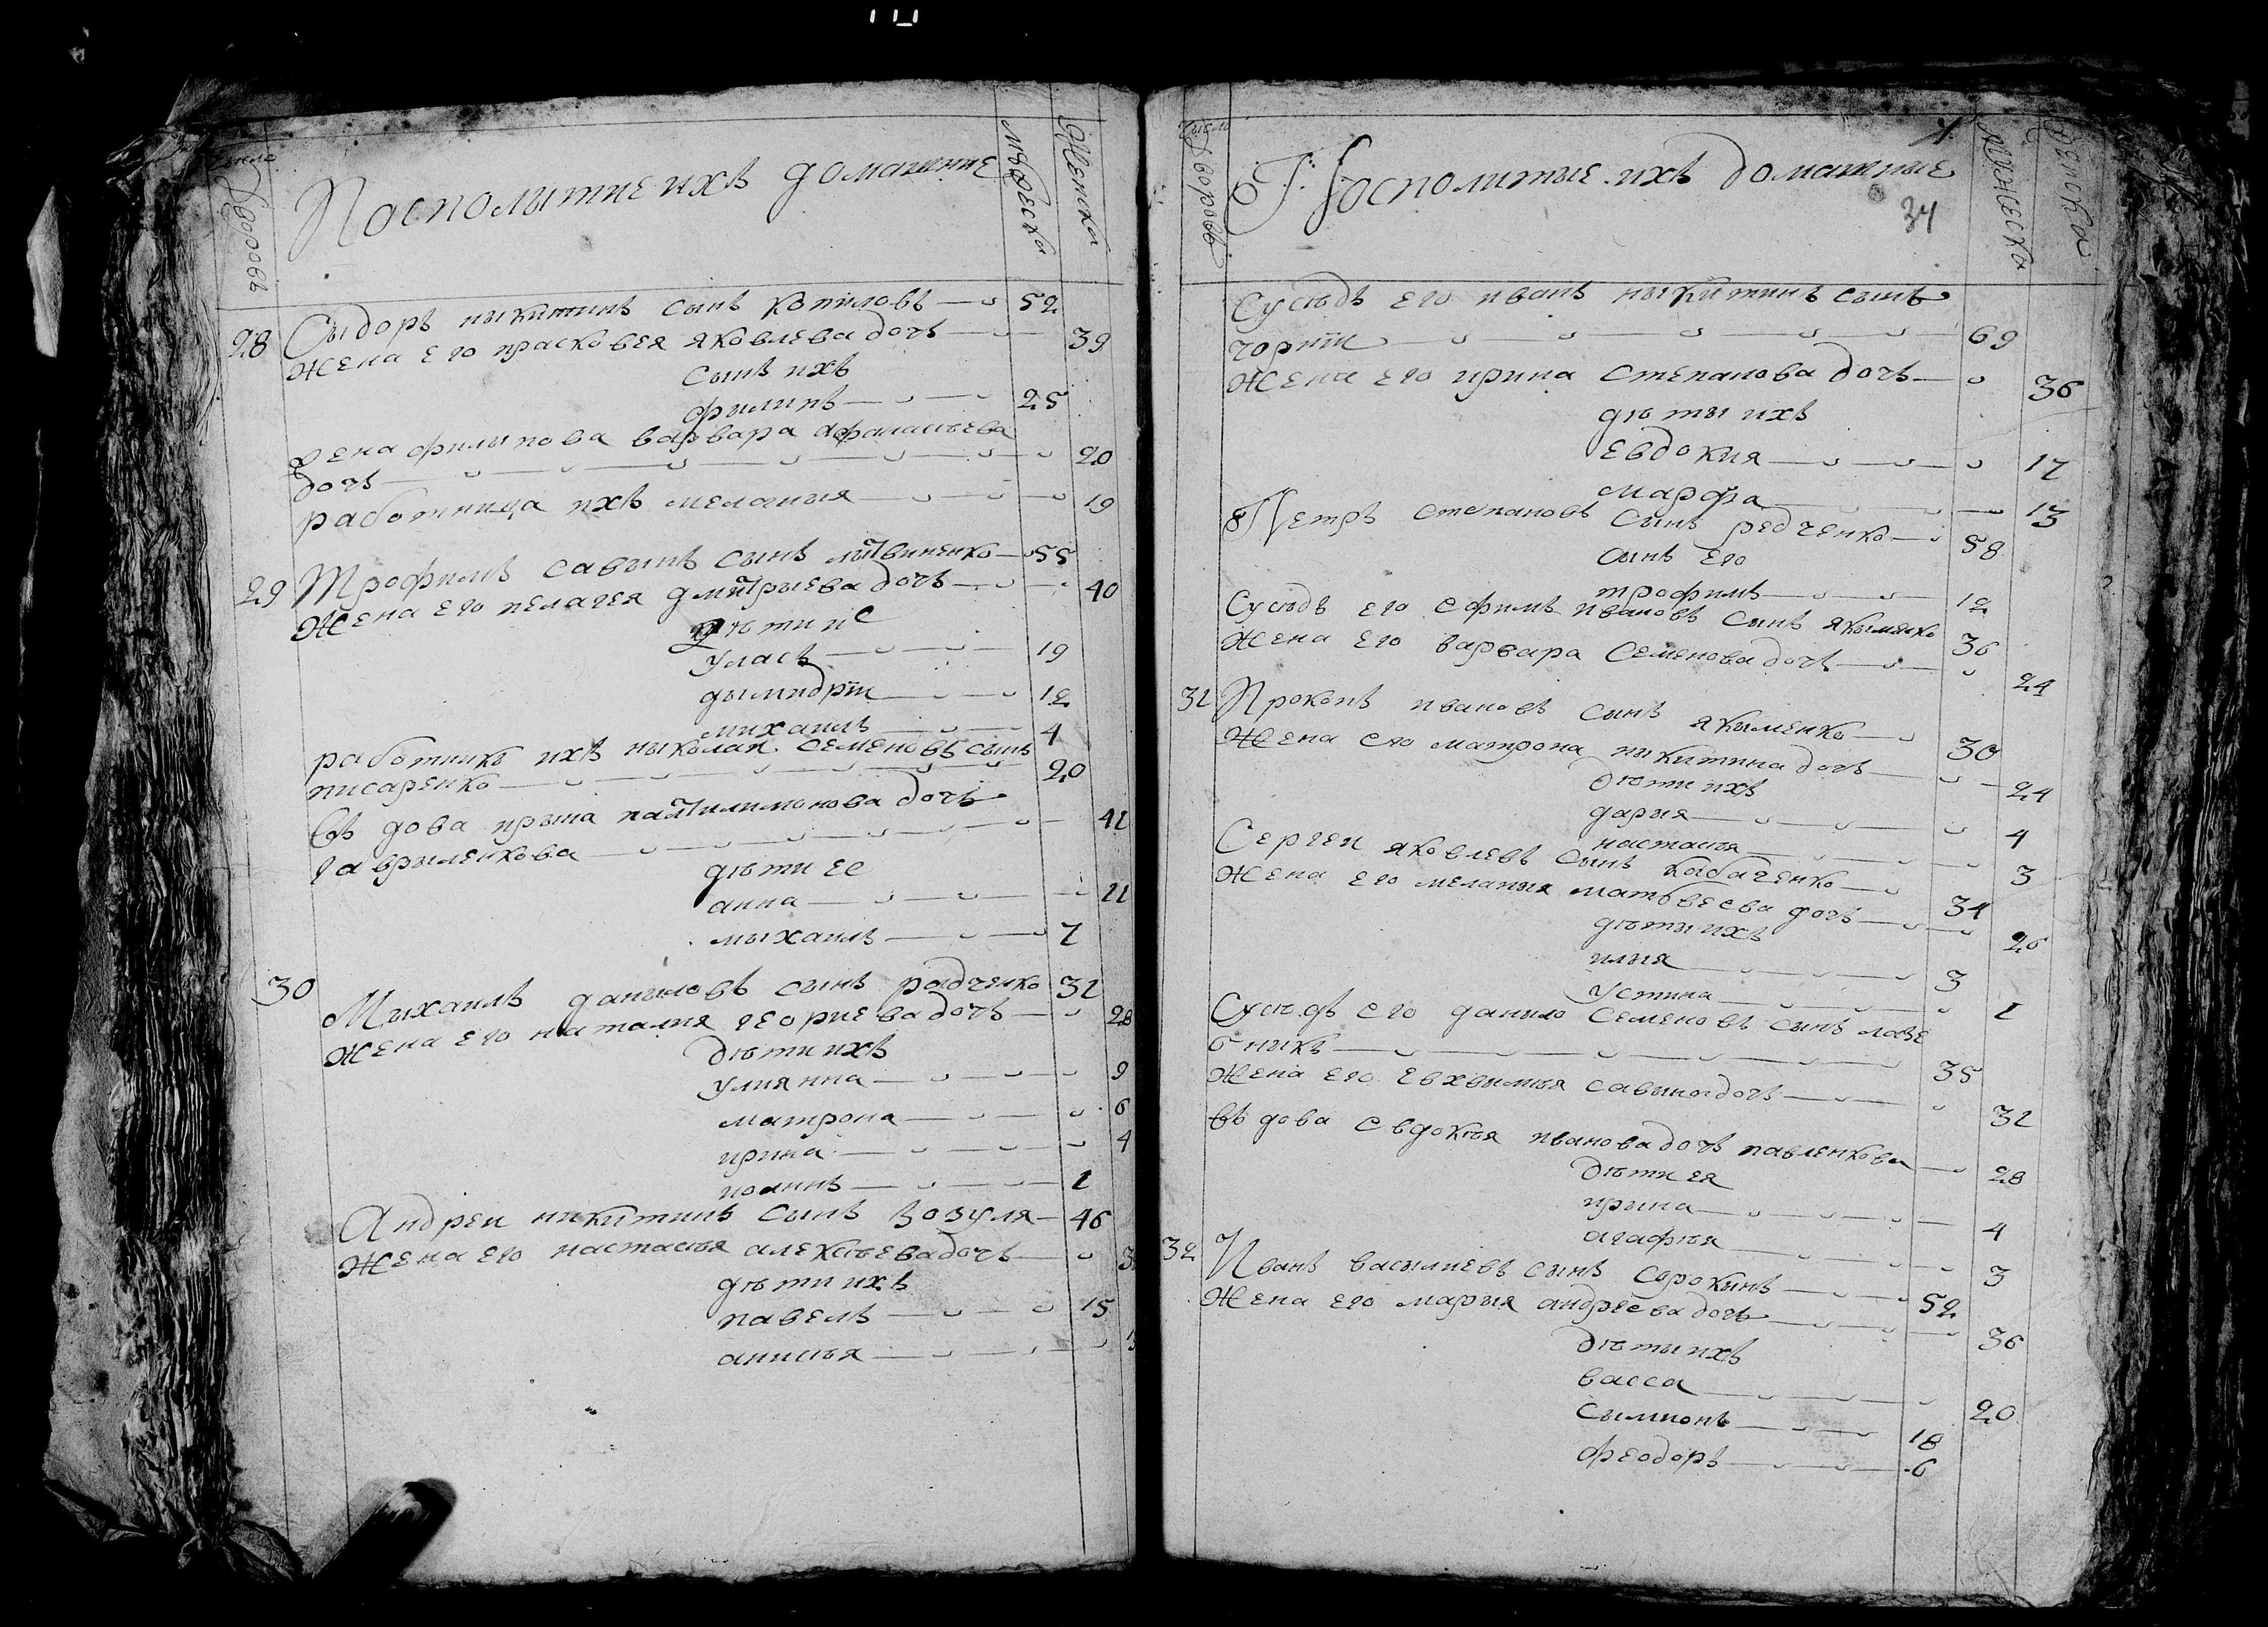 число дворовъ
Посполитие ихъ домашние
мужеска
женска
28 Сыдоръ ныкитинъ сынъ копиловъ 52
жена его прасковея яковлева дочь 39
сынъ ихъ
филипъ 25
жена филыпова варвара афанасьева
дочь 20
работница ихъ меланыя 19
29 Трофимъ савынъ сынъ литвиненко 55
жена его пелагея дмитрыева дочь 40
дѣти их
уласъ 19
дымидрти 12
михаилъ 4
работникъ ихъ ныколаи семеновъ сынъ
писаренко 20
въдова ирына пантилимонова дочь
гаврыленкова 41
дѣти ее
анна 11
мыхаилъ 7
30 Михаилъ даныловъ сынъ радченко 31
жена его наталия георгиева дочь 28
дѣти ихъ
улиянна 9
матрона 6
ирина 4
иоаннъ 1
Андреи никитинъ сынъ зозуля 46
жена его настасѣя алексѣева дочь 3
дѣти ихъ
павелъ 15
анисѣя
число дворовъ
Посполитые ихъ домашние
34
мужеска
женска
Сусѣдъ его иванъ ныкитинъ сынъ
69
жена его ирина степанова дочь 36
дѣты ихъ
евдокия 17
марфа 13
Петръ степановъ сынъ редченко 58
сынъ его
трофимъ 12
Сусѣдъ его ефимъ ивановъ сынъ якыменко 36
жена его варвара семенова дочь 24
31 Прокопъ ивановъ сынъ якыменко 30
жена его матрона ныкитина дочь 24
дѣти ихъ
дария 4
настасѣя 3
Сергеи яковлевъ сынъ кабаченко 34
жена его мелания матвеева дочь 26
дѣти ихъ
илия 3
устина 1
Сусѣдъ его данило семеновъ сынъ лазе
бныкъ 35
жена его евхвымѣя савына дочь 31
въдова евдокѣя иванова дочь павленкова 28
дѣти ея
ирина 4
агафѣя 3
32 Иванъ василиевъ сынъ сорокинъ 52
жена его марыя андреева дочь 36
дѣты ихъ
васса 20
сымионъ 18
феодоръ 6